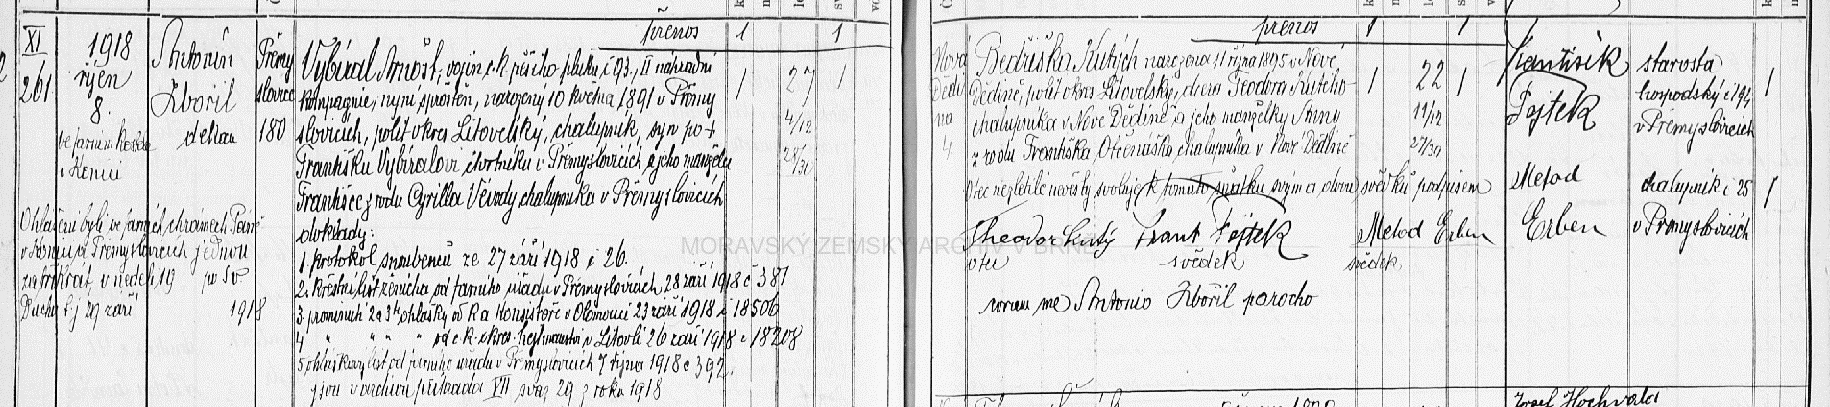 přenos 1 1
přenos 1 1
XI
261
1918
říjen
8.
ve farním kostele
v Kenici
Antonín
Zbořil
děkan
Přemy
slovice
180
Výbíral Arnošt, vojín c.k. pěšího pluku č 93, II náhradní
kompagnie, nyní sproštěn, narozený 10 května 1891 v Přemy
slovicích, polit okres Litovelský, chalupník, syn po †
Františku Vybíralovi čtvrtníku v Přemyslovicích a jeho manželce
Františce z rodu Cyrilla Vévody chalupníka v Přemyslovicích
doklady:
1 protokol snoubenců ze 27 září 1918 č 26.
2. křestní list ženicha od farního úřadu v Přemyslovicích 28 září 1918 č 381
3 prominutí 2 a 3tí ohlášky od k a Konsistoře v Olomouci 23 září 1918 č 18506
4 " " " " od c.k. okres. hejtmanství v Litovli 26 září 1918 č 18208
5 ohláškový list od farního úřadu v Přemyslovicích 7 října 1918 č 392.
jsou v archivu přihrada VII svaz 29 z roku 1918
1 27 1
4/12
28/31
Ohlášeni byli ve farních chrámech Páně
v Kenici a Přemyslovicích jednou
za třikrát, v neděli 19 po Sv.
Duchu t.j 29 září 1918
Nová
Dědi
na
4
Bedřiška Kutých narozena 11 října 1895 v Nové
Dědině, polit okres Litovelský, dcera Teodora Kutého
chalupníka v Nové Dědině a jeho manželky Anny
z rodu Františka Otčenáška chalupníka v Nové Dědině
1 22 1
11/12
27/30
Otec nezletilé nevěsty svoluje k tomuto sňatku svým a dvou svědků podpisem
Theodor Kutý Frant Fojtek Metod Erben
otec svědek svědek
coram me Antonio Zbořil parocho
František
Fojtek
starosta
hospodský č 194
v Přemyslovicích
1
Metod
Erben
chalupník č 25
v Přemyslovicích
1
MORAVSKÝ ZEMSKÝ ARCHIV BRNO
Josef Hochvald